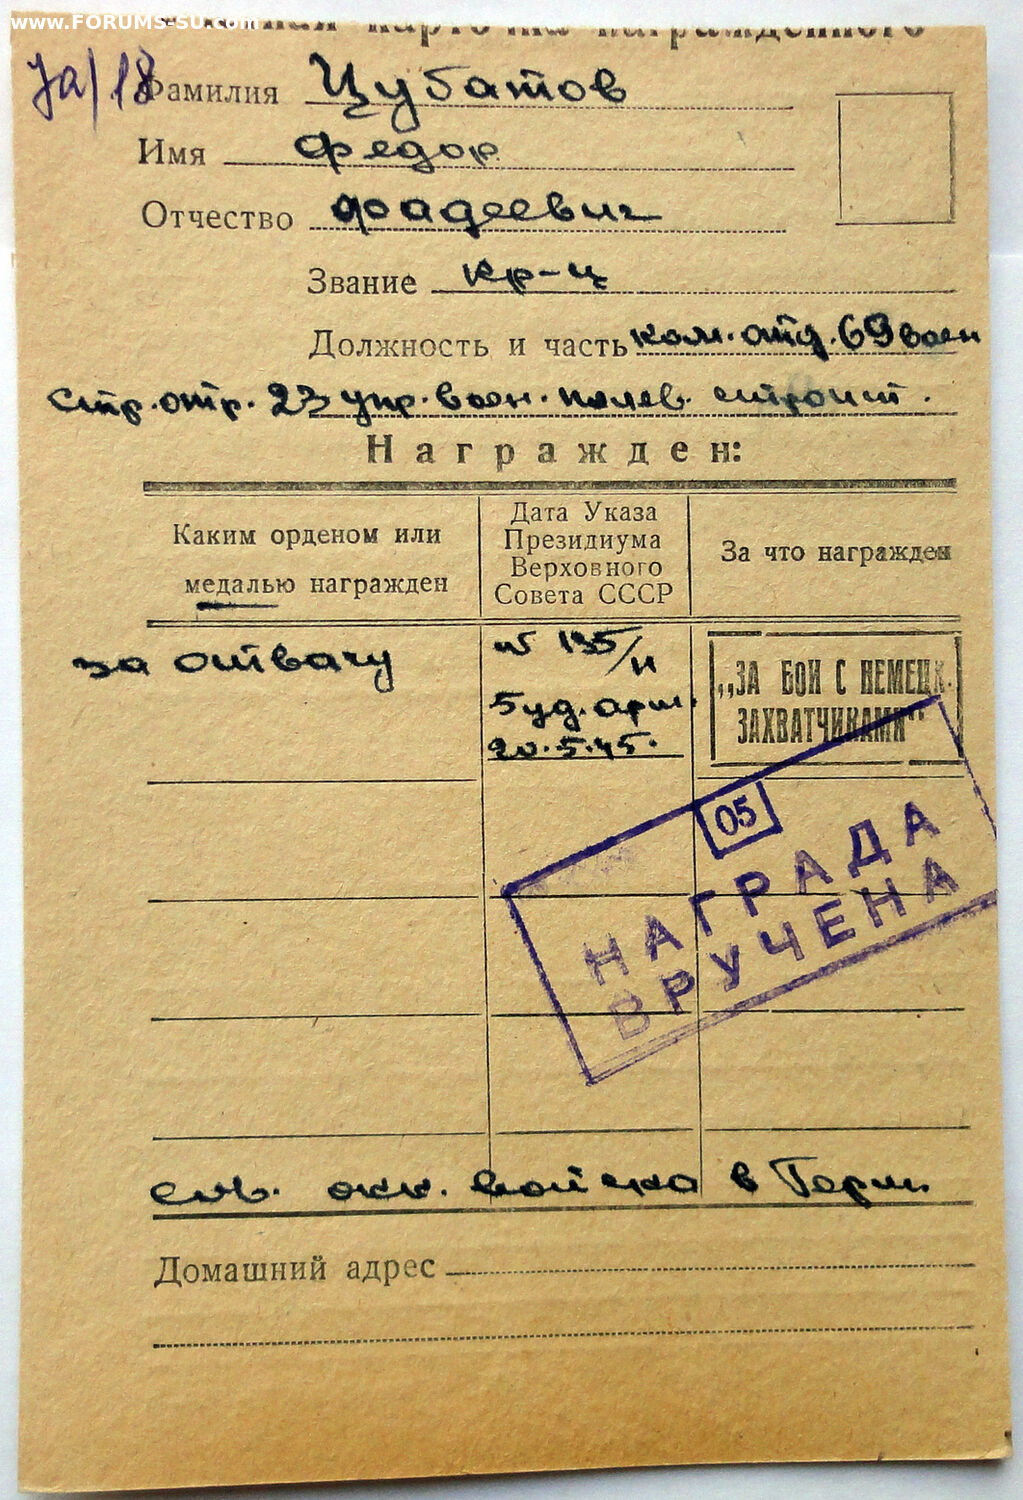 www.FORUMS-SU.com
карточка награжденного
Фамилия Цубатов
Имя Федор
Отчество Фадеевич
Звание кр-ц
Должность и часть ком. отд. 69 воен
стр. отр. 23 упр. воен. полев. строит.
Награжден:
Каким орденом или
медалью награжден
Дата Указа
Президиума
Верховного
Совета СССР
За что награжден
за отвагу
№ 135/н
5 уд. арм.
20.5.45.
„ЗА БОИ С НЕМЕЦК.
ЗАХВАТЧИКАМИ“
05
НАГРАДА
ВРУЧЕНА
сов. окк. войска в Герм.
Домашний адрес